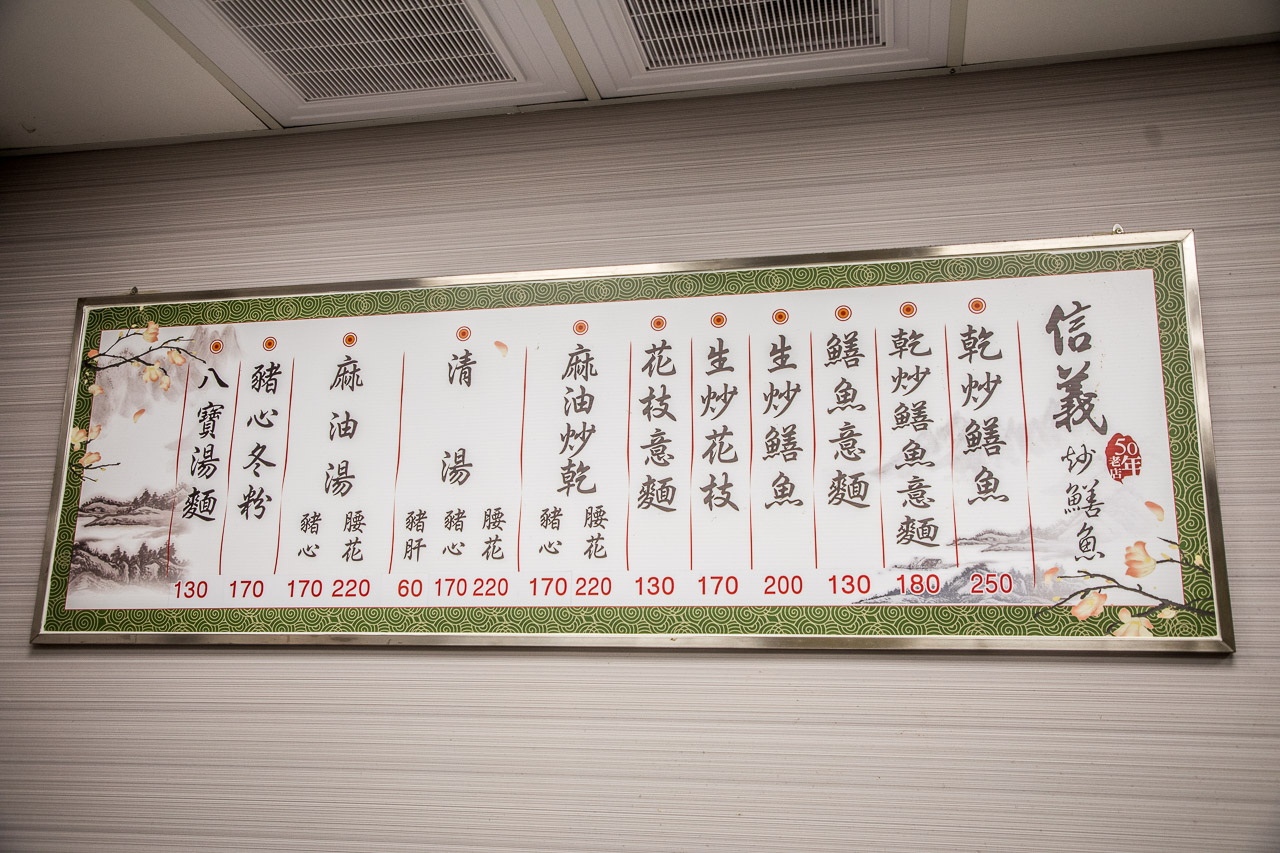 信義炒鱔魚
50年老店
乾炒鱔魚
250
乾炒鱔魚意麵
180
鱔魚意麵
130
生炒鱔魚
200
生炒花枝
170
花枝意麵
130
麻油炒乾
腰花
220
豬心
170
清湯
腰花
220
豬心
170
豬肝
60
麻油湯
腰花
220
豬心
170
豬心冬粉
170
八寶湯麵
130